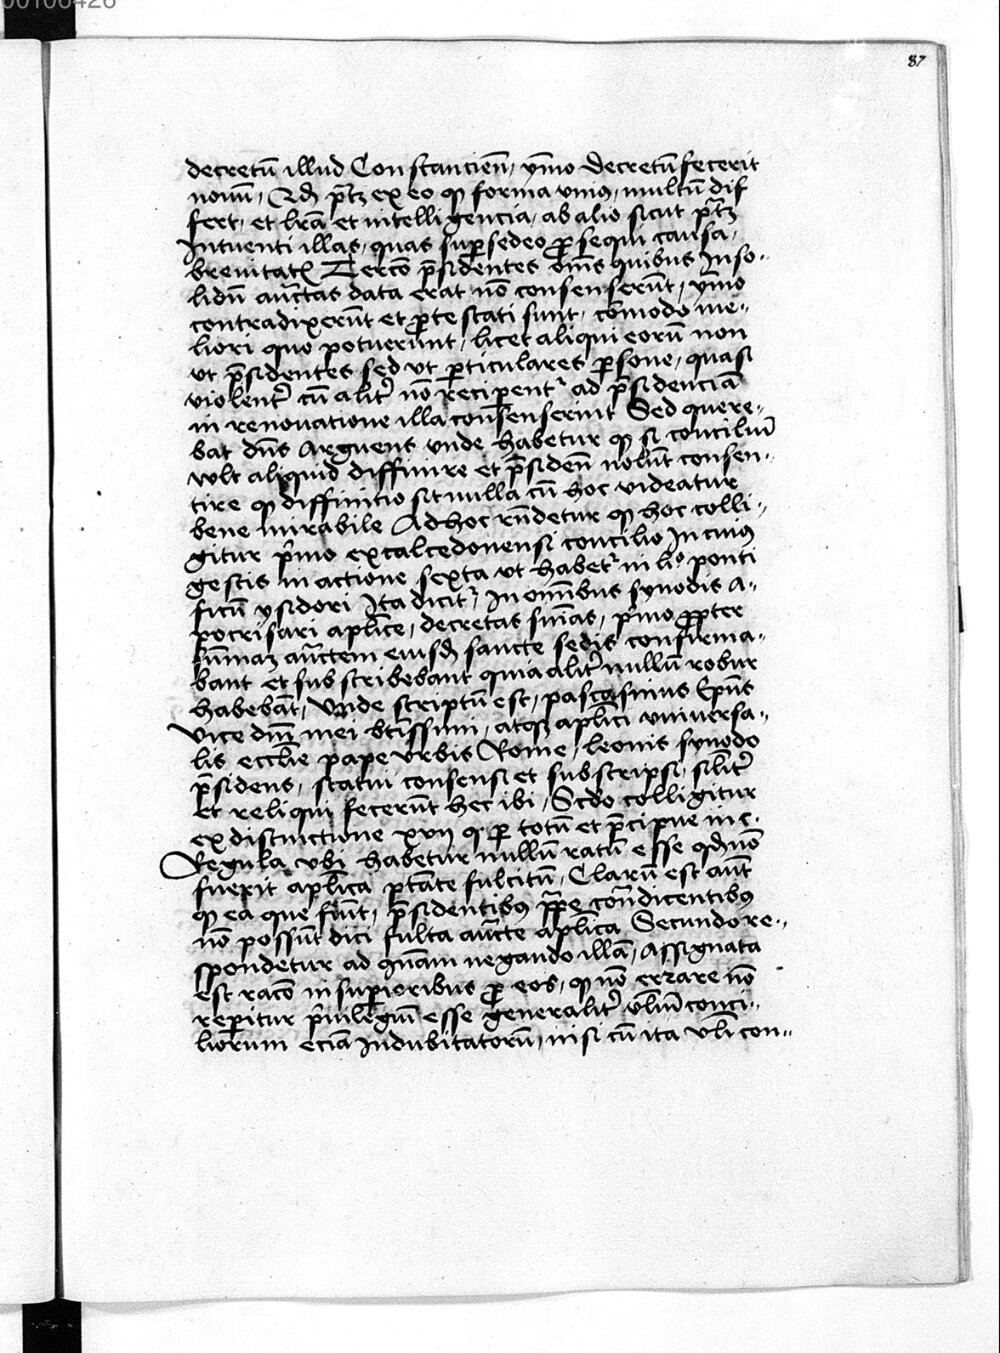 00106426
87
decretū illud Constancieñ, ymo decretū fecerit
nouū, Qđ p̄tz ex eo qꝫ forma vniꝰ, multū dif
fert, et lrā et intelligencia, ab alio sicut p̄tz
Intuenti illas, quas suꝑsedeo ꝓsequi causa,
breuitatꝭ Tercō p̄sidentes om̄s quibus Inso-
lidū auc̄tas data erat nō consenserūt, ymo
contradixerūt et ꝓtestati sunt, cōmodo me-
liori quo potuerunt, licet aliqui eorū non
vt p̄sidentes sed vt ꝑticulares ꝑsone, quasi
violent̄ cū alit̄ nō reciperent̄ ad p̄sidenciā
in renouatione illa consenserint Sed quere-
bat dn̄s Arguens vnde habetur qꝫ si conciliū
vult aliquid diffinire et p̄sideñ nolūt consen-
tire qꝫ diffinitio sit nulla cū hoc videatur
bene mirabile Ad hoc rn̄detur qꝫ hoc colli-
gitur p̄mo ex calcedonensi concilio In cuiꝰ
gestis in actione sexta vt habet̄ in li° ponti
ficū ysidori Ita dicit̄, In om̄ibus synodis a-
pocrisari apl̄ice, decretas sn̄ias, p̄mo ꝓpter
sūmaꝫ auc̄tem eiusđ sancte sedis confirma-
bant et subscribebant quia alit̄ nullū robur
habebāt, Vnde scriptū est, pascasinus Ep̄us
Vice dn̄i mei bt̄issimi, atqꝫ apl̄ici vniuersa-
lis eccl̄ie pape vrbis Rome, leonis synodo
p̄sidens, statui consensi et subscripsi, silīt̄
Et reliqui fecerūt hec ibi, Scđo colligitur
ex distinctione xvij qꝫ ꝑ totū et p̄cipue in c.
Regula vbi habetur nullū ratū esse qđ nō
fuerit apl̄ica ptāte fulcitū, Clarū est aūt
qꝫ ea que fiūt, p̄sidentibꝰ pp̄e cōtradicentibꝰ
nō possūt dici fulta auc̄te apl̄ica Secundo re-
spondetur ad qn̄am negando illā, Assignata
est racō in suꝑioribus ꝓ eos, qꝫ nō errare nō
reperitur p̄uilegiū esse generalit̄ om̄iū conci-
liorum eciā Indubitatorū, nisi cū ita vl̄i con-